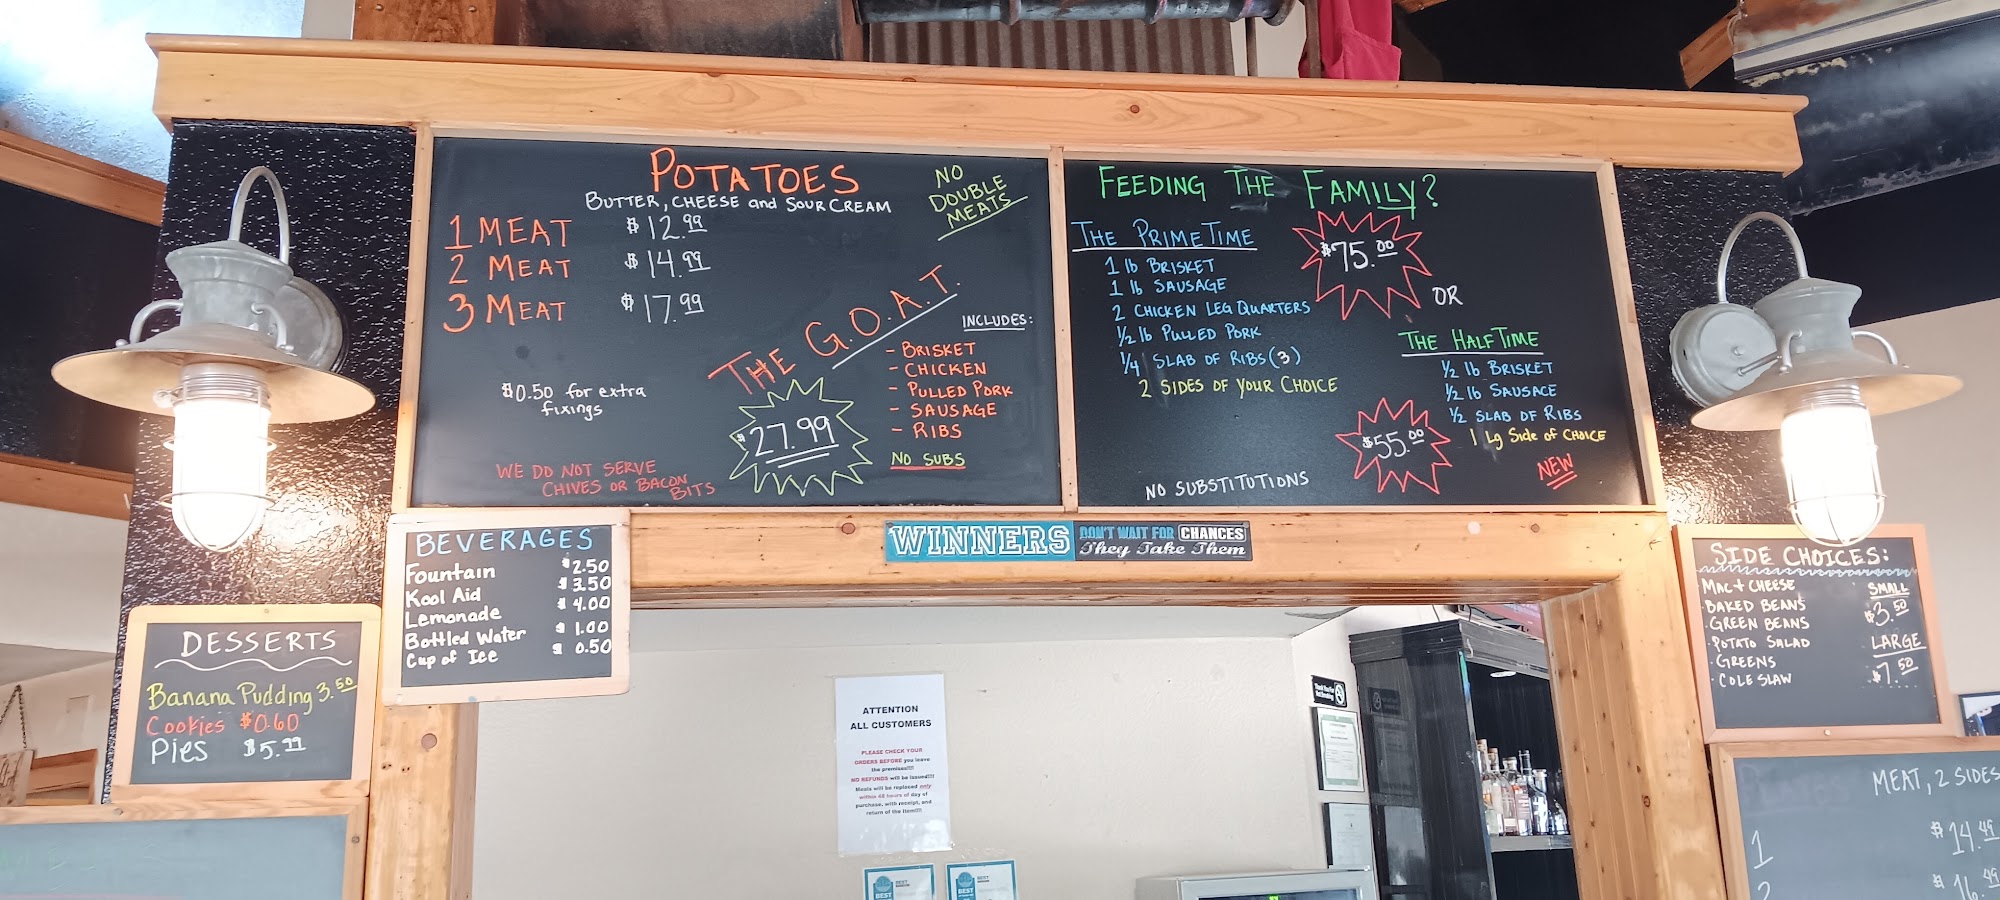 POTATOES
BUTTER, CHEESE and SOUR CREAM
NO
DOUBLE
MEATS
1 MEAT $12.99
2 MEAT $14.99
3 MEAT $17.99
$0.50 for extra
fixings
WE DO NOT SERVE
CHIVES OR BACON
BITS
THE G.O.A.T.
$27.99
INCLUDES:
- BRISKET
- CHICKEN
- PULLED PORK
- SAUSAGE
- RIBS
NO SUBS
FEEDING THE FAMILY?
THE PRIMETIME
$75.00
1 lb BRISKET
1 lb SAUSAGE
2 CHICKEN LEG QUARTERS
1/2 lb PULLED PORK
1/4 SLAB OF RIBS (3)
2 SIDES OF YOUR CHOICE
OR
THE HALFTIME
1/2 lb BRISKET
1/2 lb SAUSAGE
1/2 SLAB OF RIBS
1 Lg Side of CHOICE
$55.00
NEW
NO SUBSTITUTIONS
WINNERS DON'T WAIT FOR CHANCES
They Take Them
BEVERAGES
Fountain $2.50
Kool Aid $3.50
Lemonade $4.00
Bottled Water $1.00
Cup of Ice $0.50
DESSERTS
Banana Pudding 3.50
Cookies $0.60
Pies $5.99
SIDE CHOICES:
MAC + CHEESE
· BAKED BEANS
· GREEN BEANS
· POTATO SALAD
· GREENS
· COLE SLAW
SMALL
$3.50
LARGE
$7.50
MEAT, 2 SIDES
1 $14.49
2 $16.49
ATTENTION
ALL CUSTOMERS
PLEASE CHECK YOUR
ORDERS BEFORE you leave
the premises!!!!
NO REFUNDS will be issued!!!!
Meals will be replaced only
within 48 hours of day of
purchase, with receipt, and
return of the item!!!!
BEST
BEST